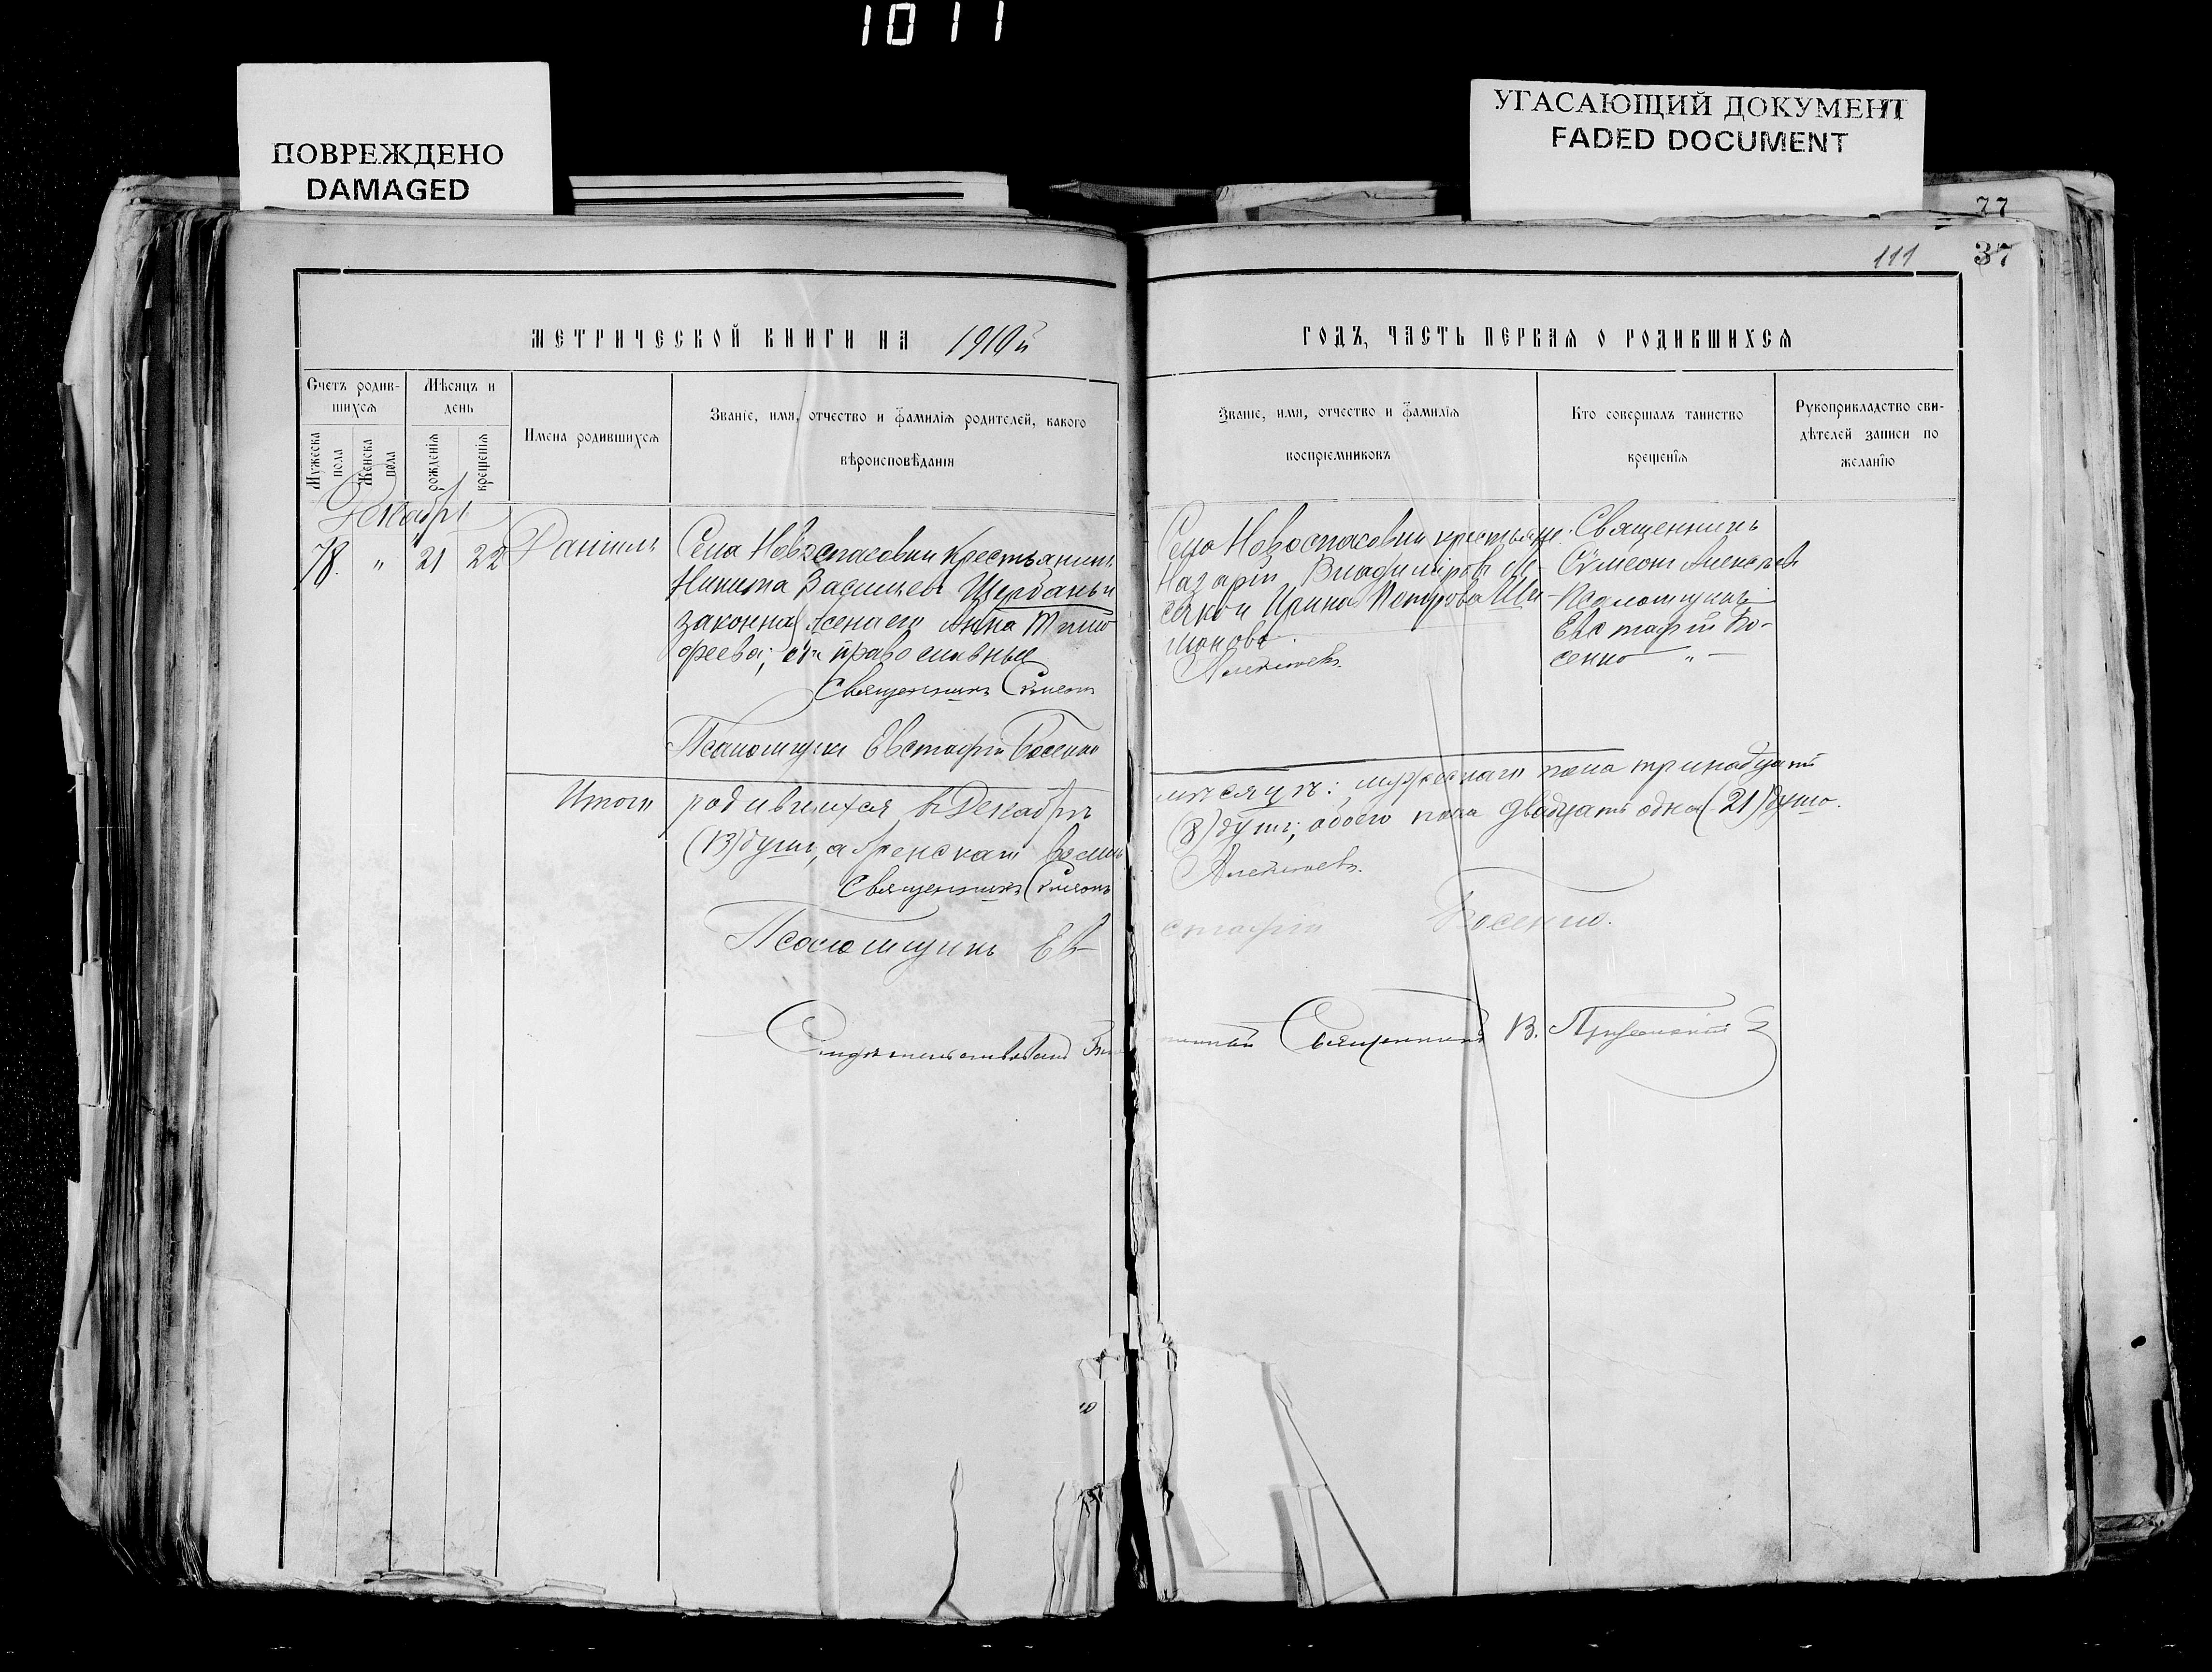 1011
ПОВРЕЖДЕНО
DAMAGED
УГАСАЮЩИЙ ДОКУМЕНТ
FADED DOCUMENT
77
111
37
МЕТРИЧЕСКОЙ КНИГИ НА 1910й
ГОДЪ, ЧАСТЬ ПЕРВАЯ О РОДИВШИХСЯ
Счетъ родив-
шихся
Мужеска
пола
Женска
пола
Мѣсяцъ и
день
рожденія
крещенія
Имена родившихся
Званіе, имя, отчество и фамилія родителей, какого
вѣроисповѣданія
Званіе, имя, отчество и фамилія
воспріемниковъ
Кто совершалъ таинство
крещенія
Рукоприкладство сви-
дѣтелей записи по
желанію
Декабрь
78. " 21 22 Даніилъ
Села Новоспасовки крестьянинъ
Никита Васильевъ Щербань и
законная жена его Анна Тимо-
феева, оба православные
Священникъ Сѵмеонъ
Псаломщикъ Евстафій Босенко
Села Новоспасовки крестьяне:
Назарій Владиміровъ
и Ирина Петрова
Алексѣевъ.
Священникъ
Сѵмеонъ Алексѣевъ
Псаломщикъ
Евстафій Бо-
сенко "
Итого родившихся въ Декабрѣ
мѣсяцѣ: мужескаго пола тринадцать
(13) душъ, а женскаго восемь
(8) душъ; обоего пола двадцать одна (21) душа.
Священникъ Сѵмеонъ
Алексѣевъ.
Псаломщикъ Ев-
стафій Босенко.
Священникъ В.